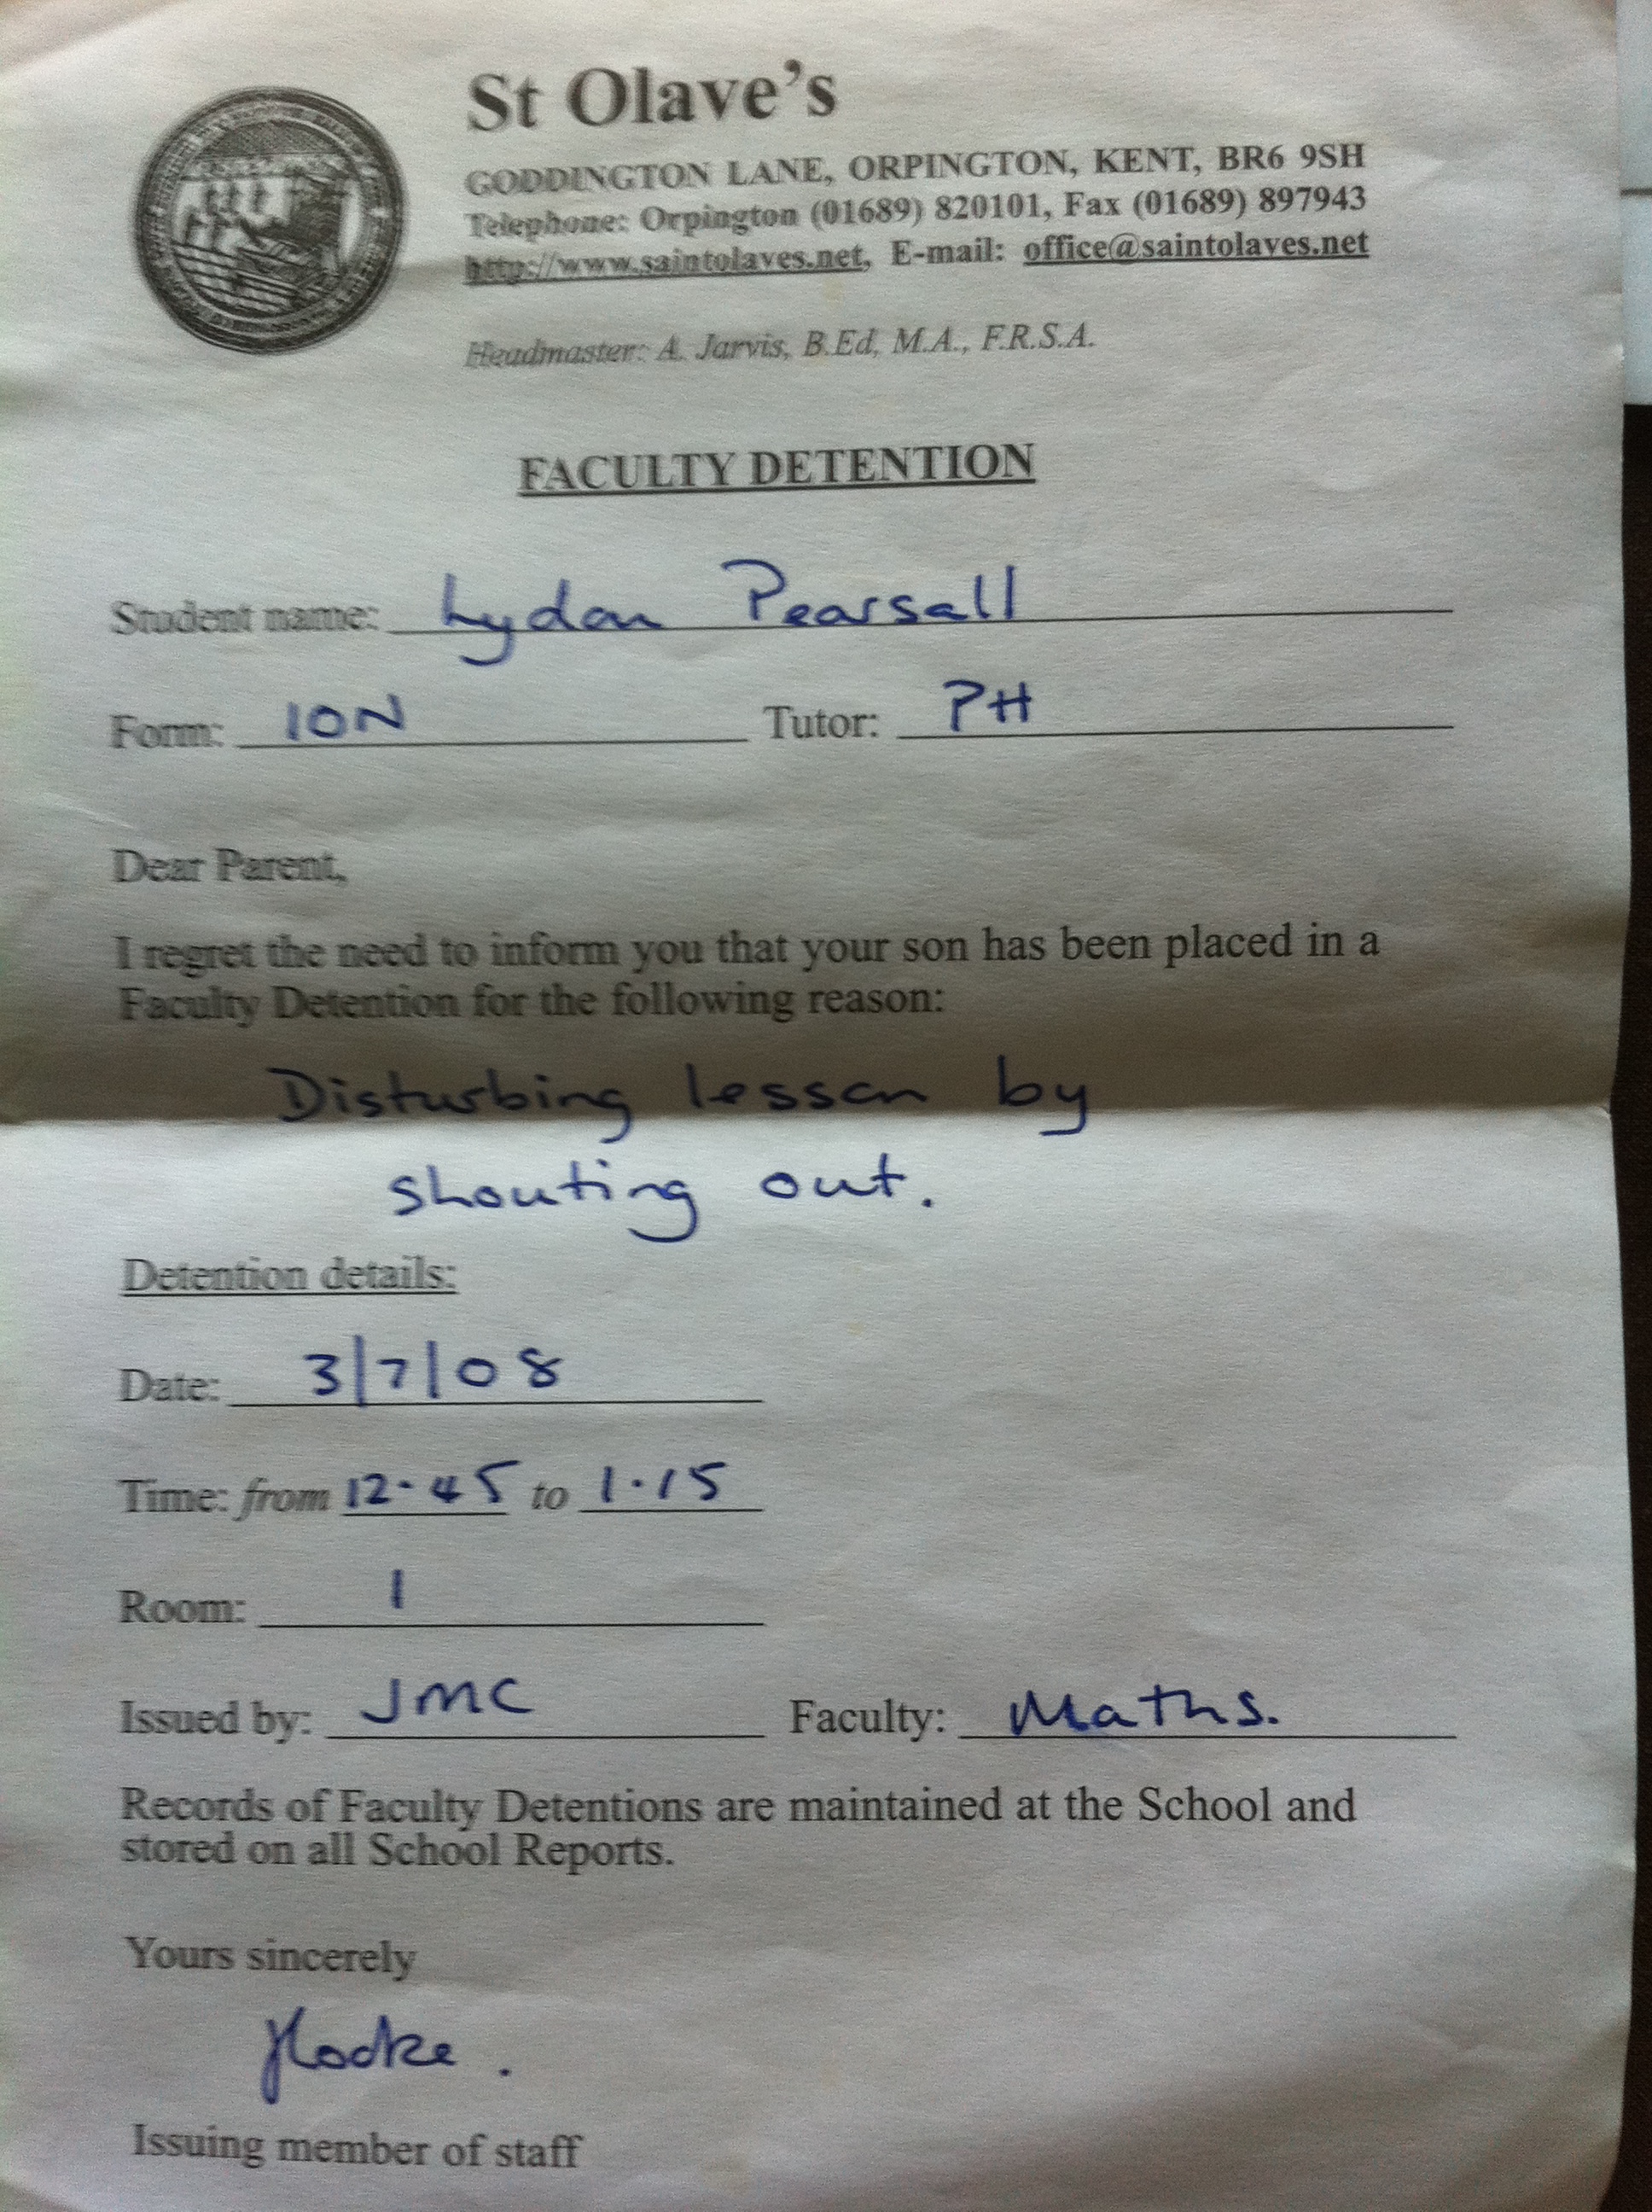 St Olave's
GODDINGTON LANE, ORPINGTON, KENT, BR6 9SH
Telephone: Orpington (01689) 820101, Fax (01689) 897943
http://www.saintolaves.net, E-mail: office@saintolaves.net
Headmaster: A. Jarvis, B.Ed, M.A., F.R.S.A.
FACULTY DETENTION
Student name: Lydon Pearsall
Form: 10N Tutor: PH
Dear Parent,
I regret the need to inform you that your son has been placed in a
Faculty Detention for the following reason:
Disturbing lesson by
shouting out.
Detention details:
Date: 3/7/08
Time: from 12.45 to 1.15
Room: 1
Issued by: JMC Faculty: Maths.
Records of Faculty Detentions are maintained at the School and
stored on all School Reports.
Yours sincerely
Issuing member of staff